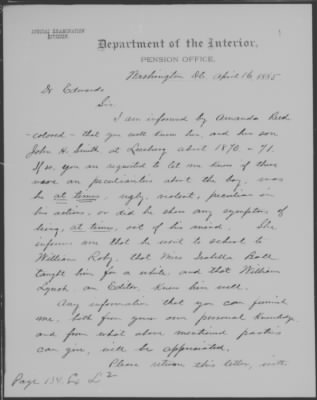 SPECIAL EXAMINATION
DIVISION.
Department of the Interior,
PENSION OFFICE,
Washington DC. April 16, 1885
Dr Edwards
Sir
I am informed by Amanda Reed
-colored- that you well knew her, and her son
John H. Smith at Leesburg about 1870-71.
If so, you are requested to let me know if there
were any peculiarities about the boy, was
he at times, ugly, violent, peculiar in
his actions, or did he show any symptoms of
being, at times, out of his mind. She
informs me that he went to school to
William Roby, that Miss Isabella Ball
taught him for a while, and that William
Lynch, an Editor, knew him well.
Any information that you can furnish
me, both from your own personal knowledge
and from what above mentioned parties
can give, will be appreciated.
Please return this letter, with
Page 134. Ex L 2